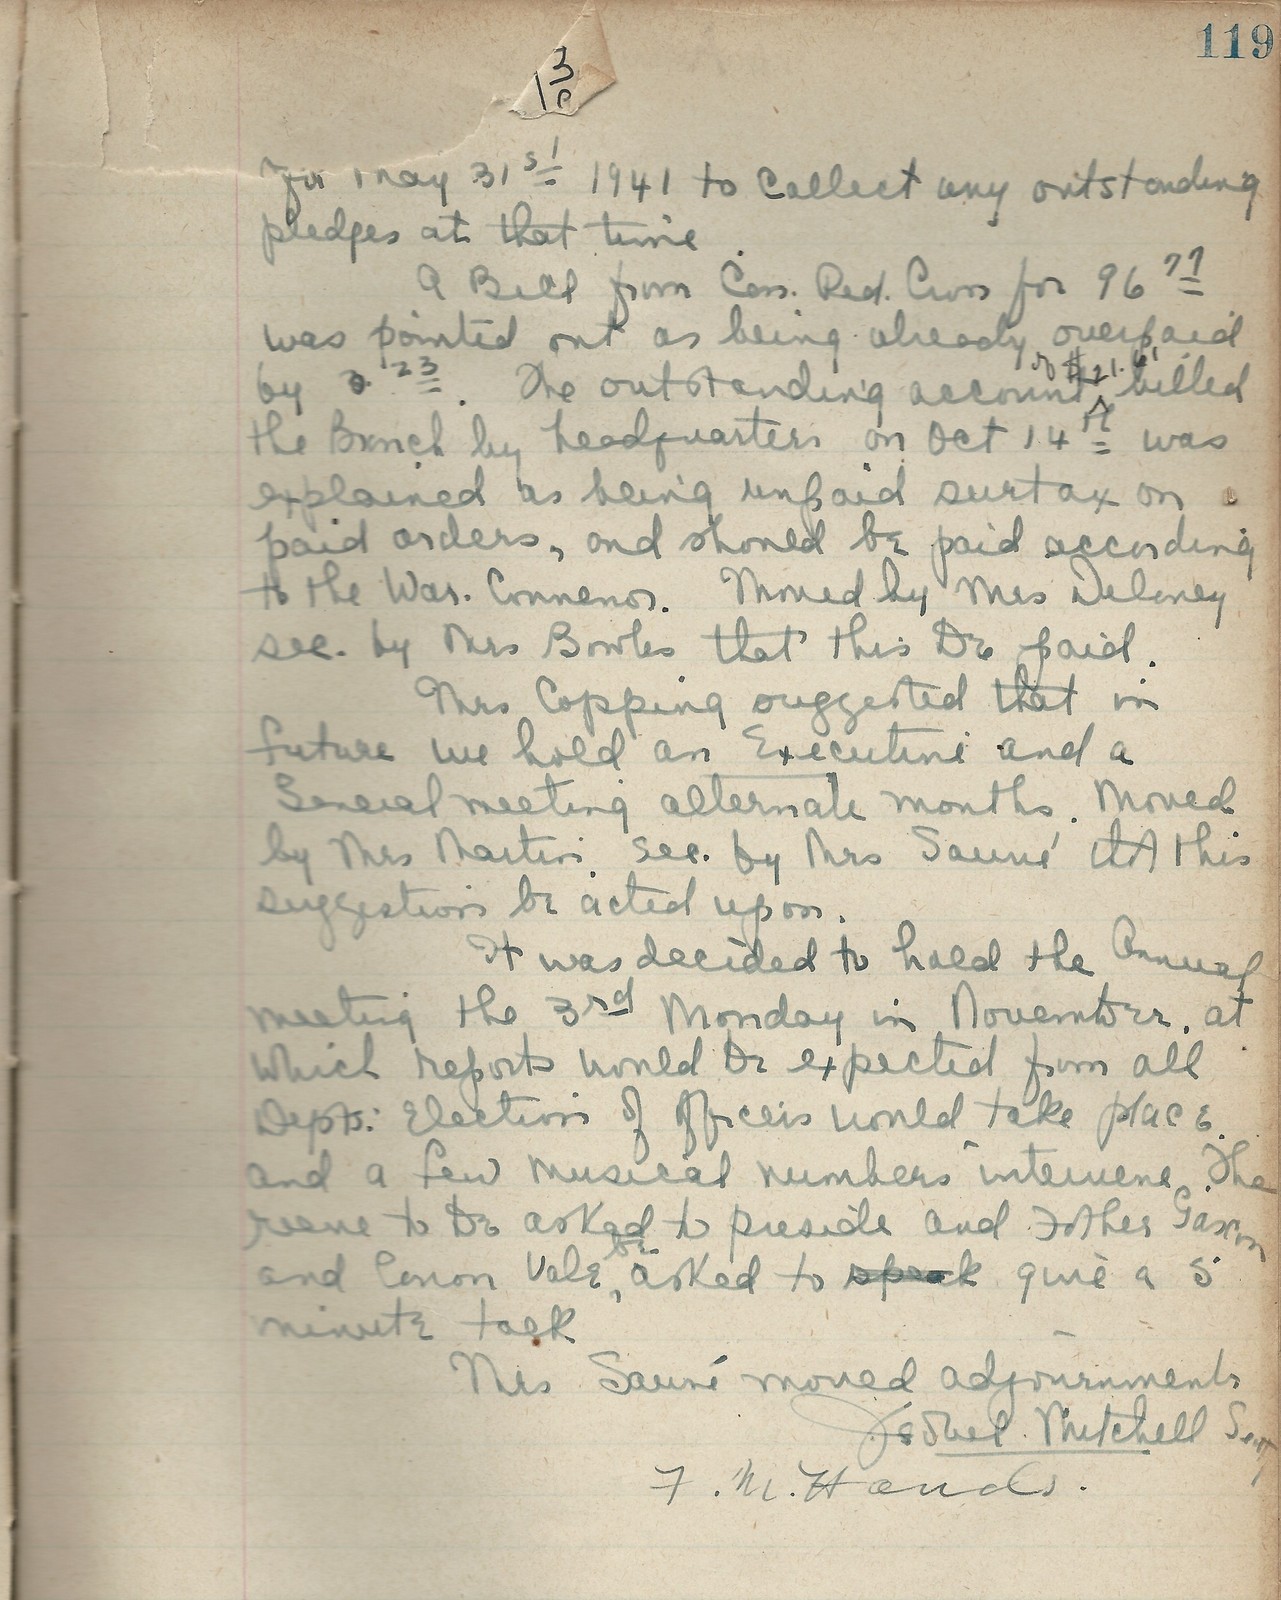 119
for May 31st 1941 to collect any outstanding
pledges at that time.
A Bill from Can. Red. Cross for 96 77
was pointed out as being already overpaid
by 3. 23. The outstanding account of $21. billed
the Branch by headquarters on Oct 14th was
explained as being unpaid surtax on
paid orders, and should be paid according
to the War. Convenor. Moved by Mrs Delaney
sec. by Mrs Bowles that this be paid.
Mrs Copping suggested that in
future we hold an Executive and a
General meeting alternate months. Moved
by Mrs Martin sec. by Mrs Sauvé that this
suggestion be acted upon.
It was decided to hold the Annual
meeting the 3rd Monday in November, at
which reports would be expected from all
Depts. Election of officers would take place
and a few musical numbers intervene. The
reeve to be asked to preside and Father Gascon
and Canon Vale, be asked to speak give a 5
minute talk
Mrs Sauvé moved adjournment
Isobel Mitchell Secty
F. M. Hands.